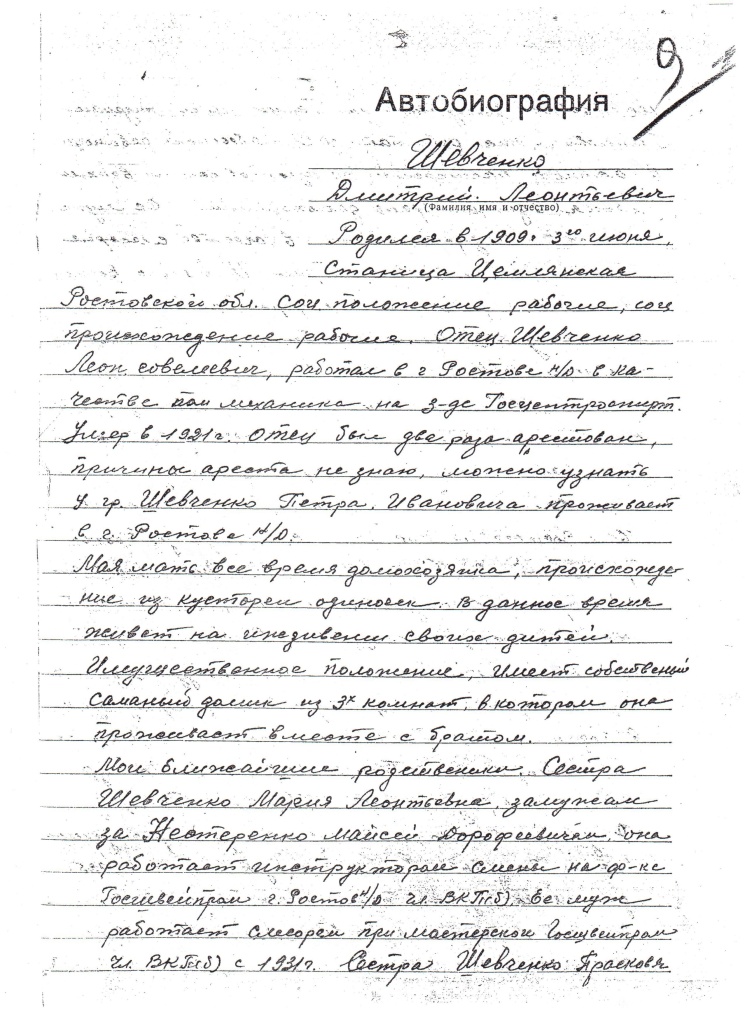 9
Автобиография
Шевченко
Дмитрий Леонтьевич
(фамилия имя и отчество)
Родился в 1909г 3го июня,
Станица Цемлянская
Ростовской обл. Соц положение рабочие, соц
происхождение рабочие. Отец Шевченко
Леон совелиевич, работал в г Ростове н/Д в ка-
честве пом механика на з-де Госцентроспирт.
Умер в 1921г. Отец был два раза арестован,
причины ареста не знаю, можно узнать
у гр. Шевченко Петра. Ивановича проживает
в г. Ростове н/Д.
Мая мать все время домохозяика, происхожде-
ние из кустореи одиночек. В данное время
живет на иждивении своих дитей.
Имущественное положение, Имеет собственый
саманый домик из 3х комнат, в котором она
проживает вместе с братом.
Мои ближайшие родственики, Сестра
Шевченко Мария Леонтьевна, замужам
за Нестеренко Майсей Дорофеевичем, она
работает инструктором смены на ф-ке
Госшвейпром г. Ростов н/Д чл. ВКП(б). Ее муж
работает слесорем при мастерской Госшвейпром
чл. ВКП(б) с 1931г. Сестра Шевченко Прасковя